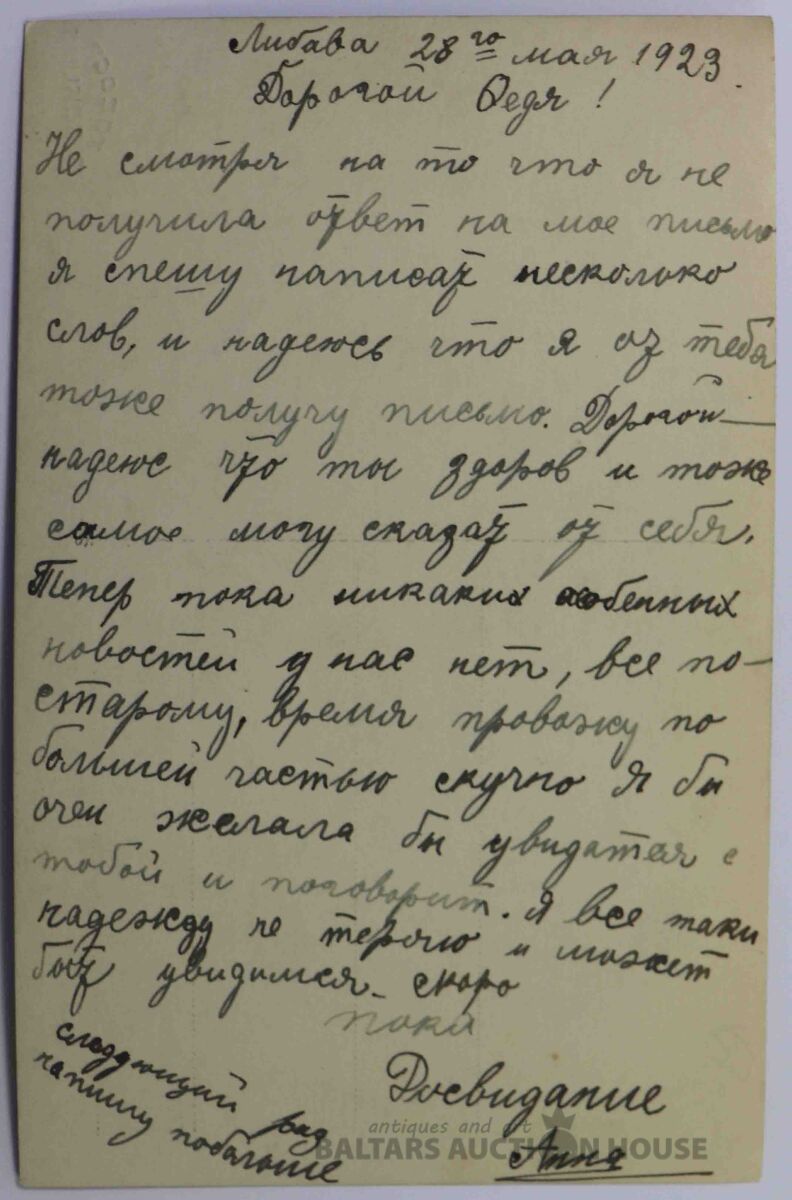 Либава 28го мая 1923.
Дорогой Федя!
Не смотря на то что я не
получила ответ на мое письмо
я спешу написат несколько
слов, и надеюсь что я от тебя
тоже получу письмо. Дорогой
надеюс что ты здоров и тоже
самое могу сказат от себя.
Тепер пока никаких особенных
новостей у нас нет, все по-
старому, время провожу по
большей частью скучно Я бы
очен желала бы увидатся с
тобой и поговорит. Я все таки
надежду не теряю и может
быт увидимся скоро
пока
Досвидание
Анна
следующий раз
напишу побольше
antiques and art
BALTARS AUCTION HOUSE